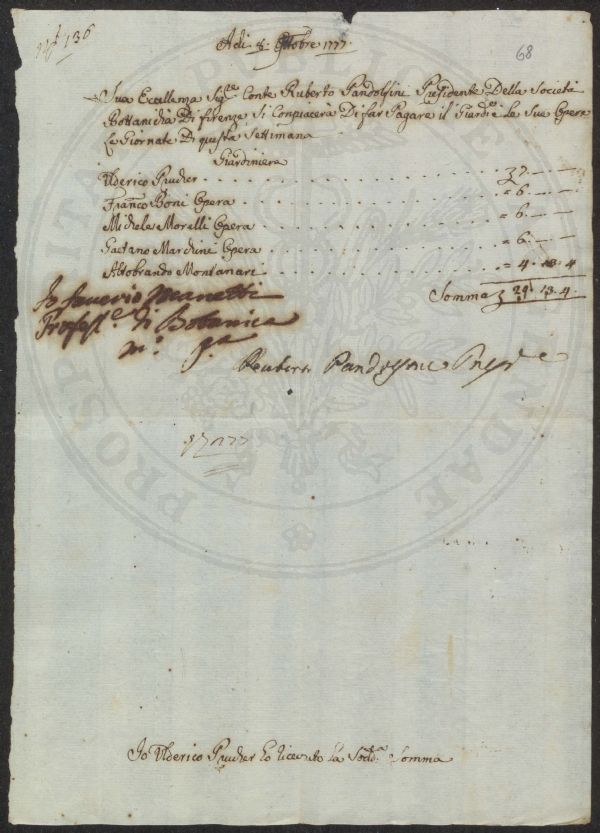 N° 136
Adi 8. Ottobre 1777.
68
Sua Eccellenza Sigre Conte Ruberto Pandolfini Presidente Della Società
Bottanicha Di firenze, Si Conpiacerà Di far Pagare il Giardre e le Sue Opera
Le Giornate Di questa Settimana
Giardiniere
Ulderico Prucher . . . 7. — —
Franco Boni Opera . . . = 6. — —
Michele Morelli Opera . . . = 6. — —
Gaetano Marchini Opera . . . = 6. — —
Altobrando Montanari . . . = 4. 13. 4
Somma 29. 13. 4.
Io Saverio Manetti
Profesre di Botanica
mo. pa
Ruberto Pandolfini Preside
Io Ulderico Prucher ho riceuto La Sodda Somma
PROSPERITATI PUBLICAE AUGENDAE